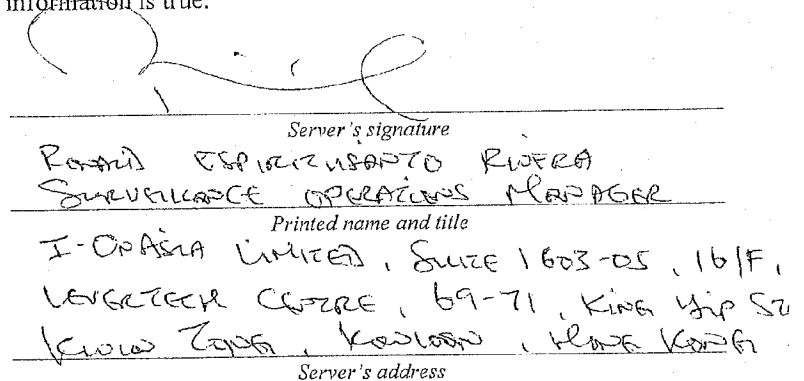 information is true.
Server's signature
RONALD ESPIRITUSANTO RIVERA
SURVEILLANCE OPERATIONS MANAGER
Printed name and title
I-ONASIA LIMITED, SUITE 1603-05, 16/F,
LEVERTECH CENTRE, 69-71, KING YIP ST
KWUN TONG, KOWLOON, HONG KONG
Server's address